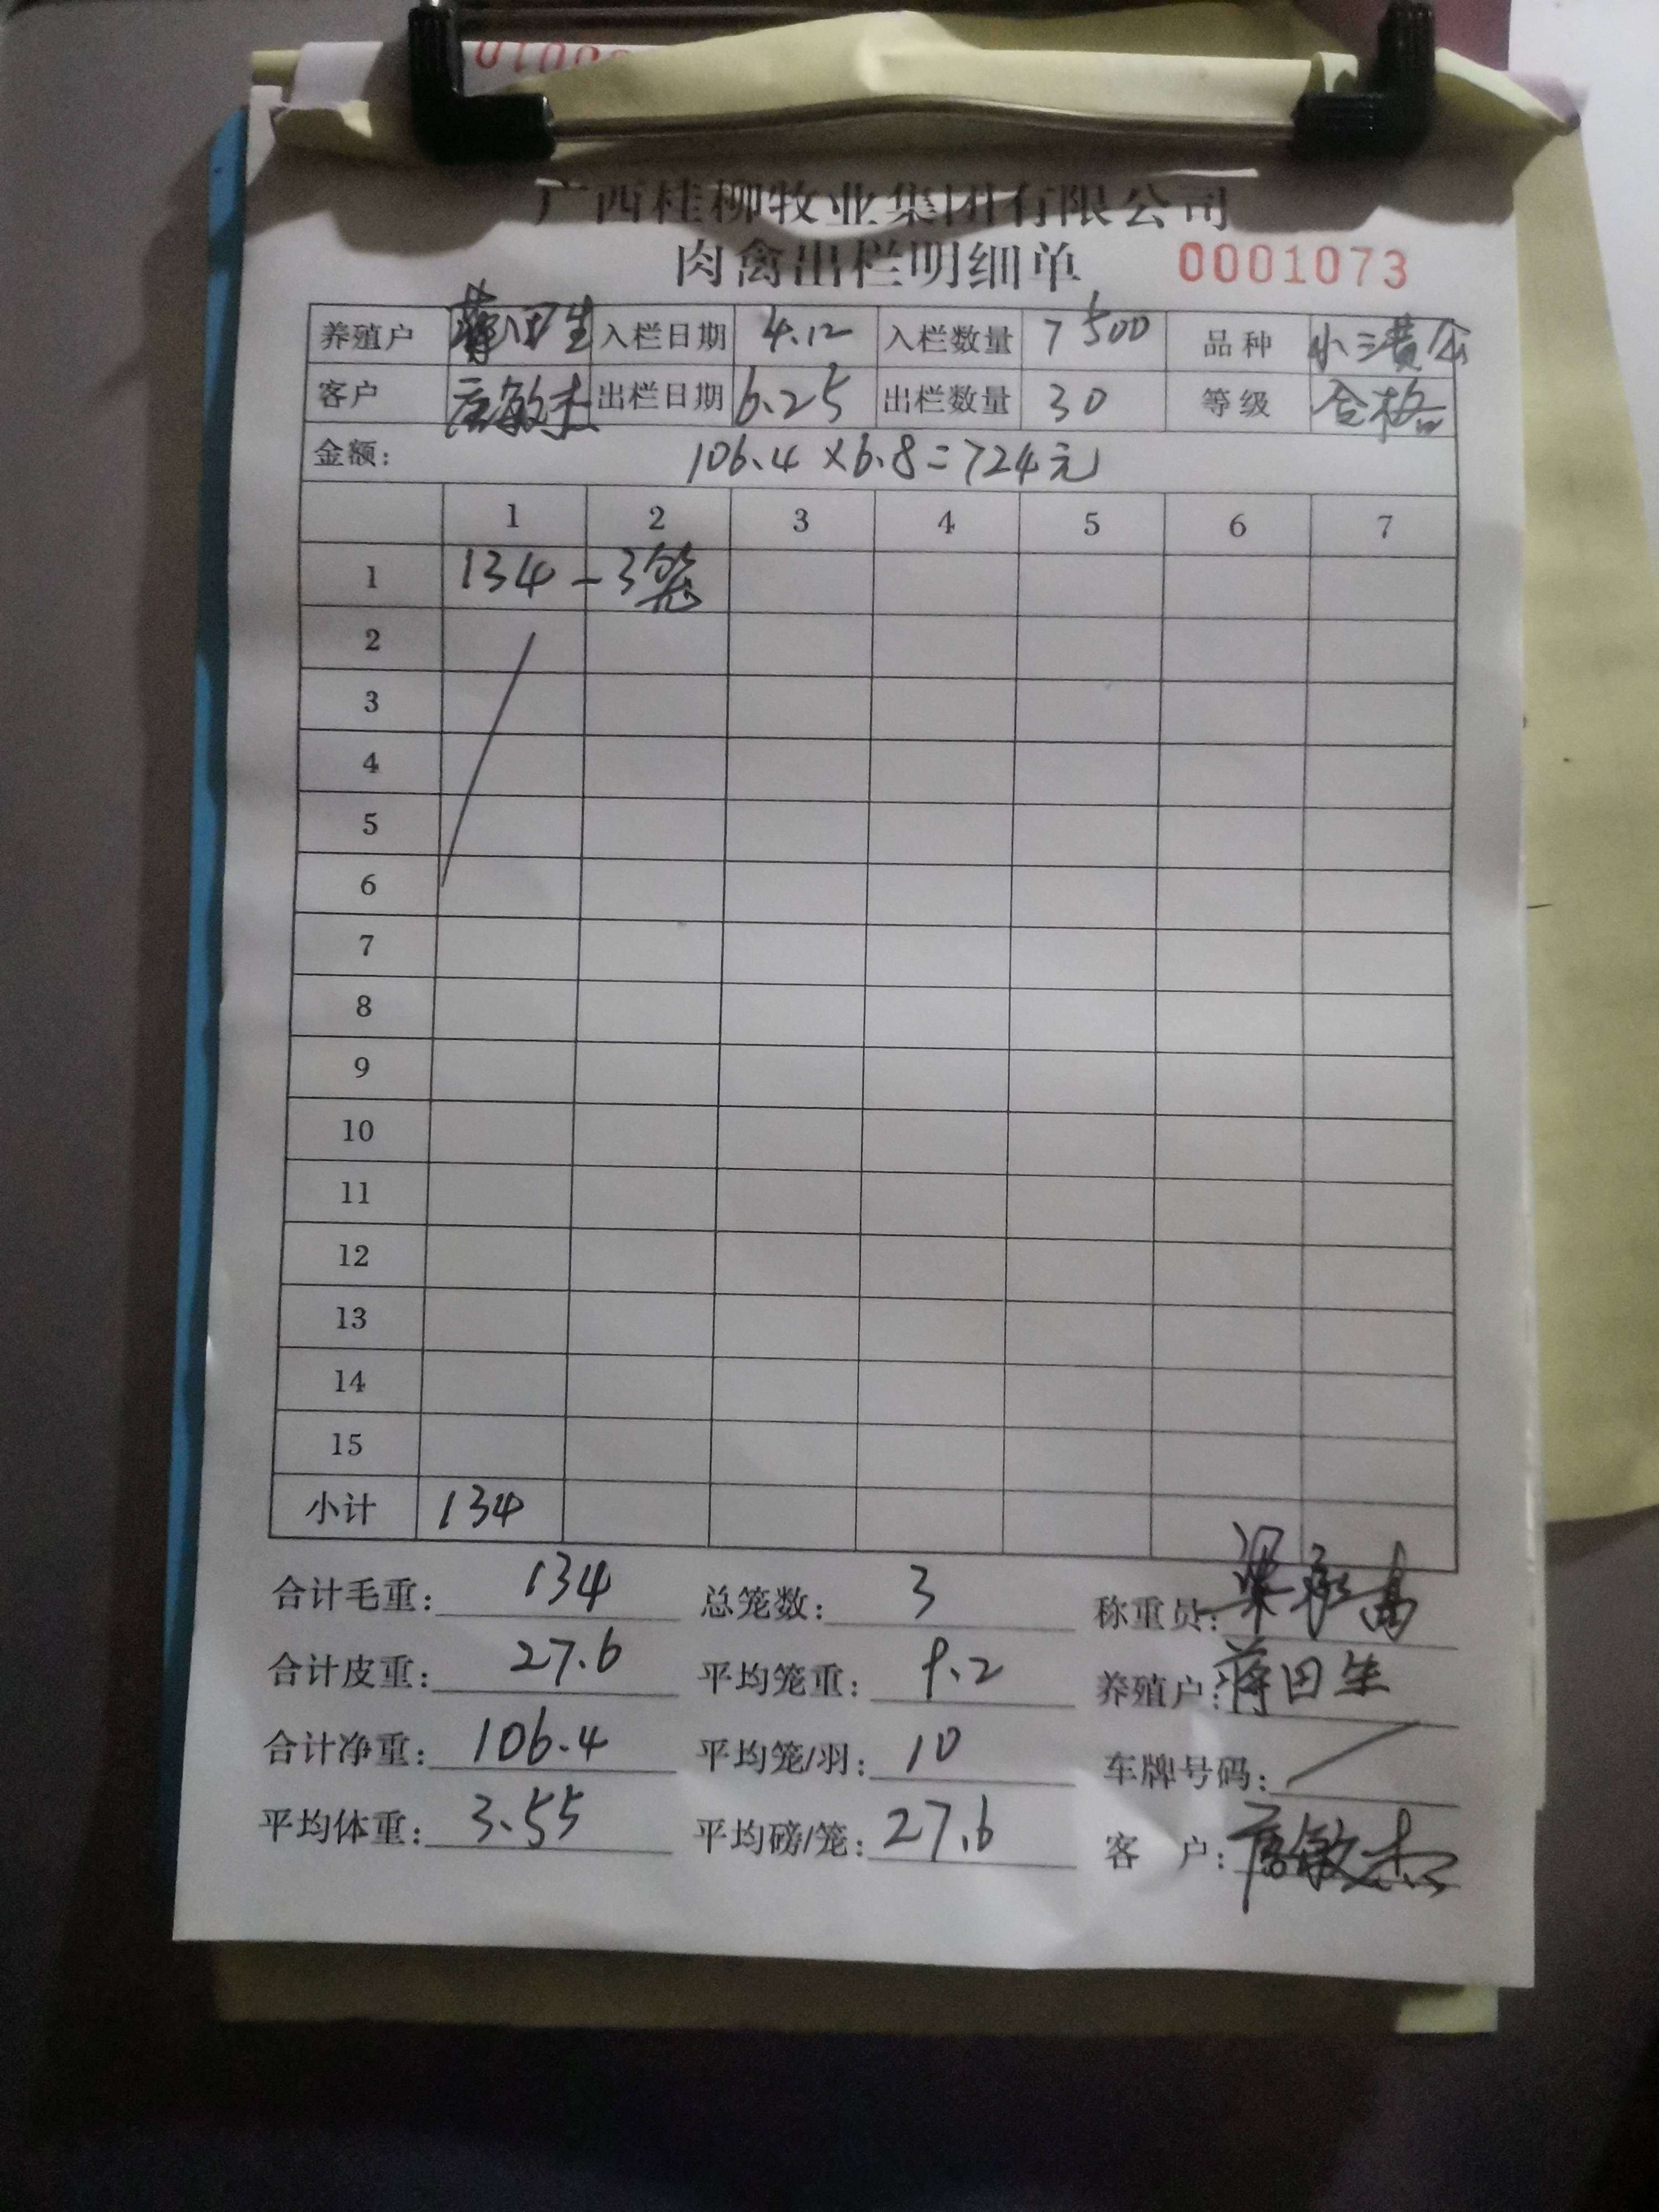 广西桂柳牧业集团有限公司
肉禽出栏明细单 0001073
养殖户 蒋田生 入栏日期 4.12 入栏数量 7500 品种 小三黄公
客户 唐敏杰 出栏日期 6.25 出栏数量 30 等级 合格
金额: 106.4×6.8=724元
1 2 3 4 5 6 7
1 134-3笼
2
3
4
5
6
7
8
9
10
11
12
13
14
15
小计 134
合计毛重: 134 总笼数: 3 称重员:
合计皮重: 27.6 平均笼重: 9.2 养殖户: 蒋田生
合计净重: 106.4 平均笼/羽: 10 车牌号码: /
平均体重: 3.55 平均磅/笼: 27.6 客 户: 唐敏杰